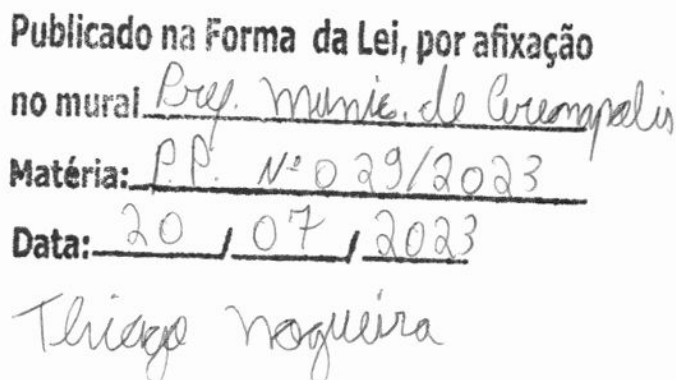 Publicado na Forma da Lei, por afixação
no mural Pref. Munic. de Cosmápolis
Matéria: P.P. Nº 029/2023
Data: 20 / 07 / 2023
Thiago Nogueira